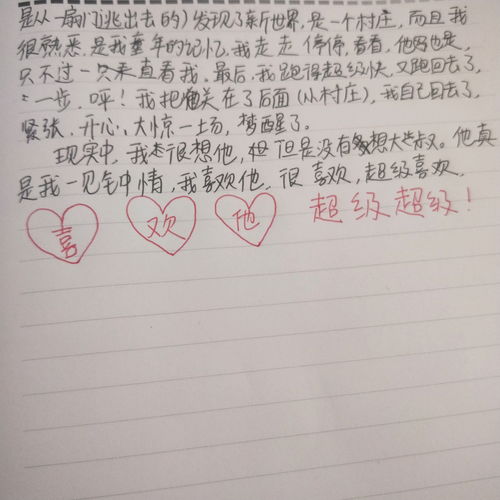 是从一扇门逃出去的)发现了新世界,是一个村庄,而且我
很熟悉,是我童年的记忆,我走走停停,看看,他也是,
只不过一只来直看我.最后,我跑得超级快,又跑回去了,
一步,呯!我把他关在了后面(从村庄),我自己回去了,
紧张,开心,大惊一场,梦醒了。
现实中,我很想他,但是没有想大叔。他真
是我一见钟情,我喜欢他,很喜欢,超级喜欢.
喜 欢 他 超级超级!